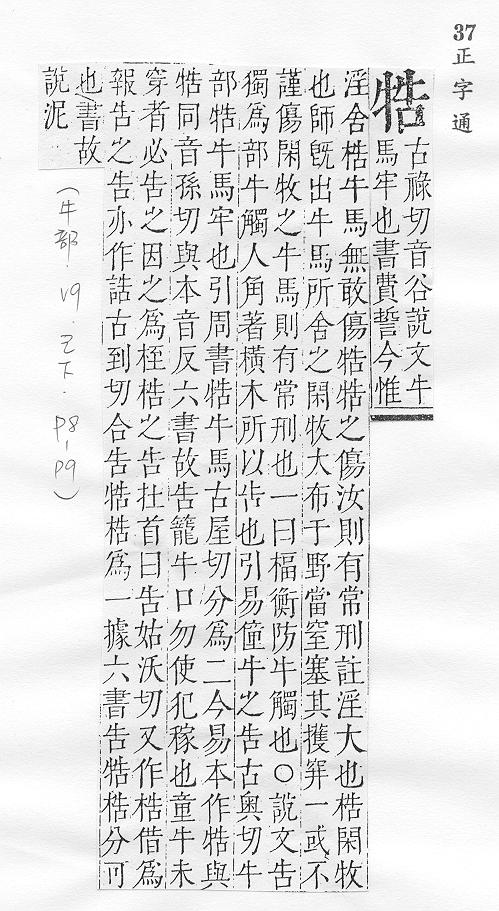 37
正字通
牿
古祿切音谷說文牛
馬牢也書費誓今惟
淫舍牿牛馬無敢傷牿牿之傷汝則有常刑註淫大也牿閑牧
也師旣出牛馬所舍之閑牧大布于野當窒塞其擭穽一或不
謹傷閑牧之牛馬則有常刑也一曰楅衡防牛觸也○說文告
獨爲部牛觸人角著橫木所以告也引易僮牛之告古奧切牛
部牿牛馬牢也引周書牿牛馬古屋切分爲二今易本作牿與
牿同音孫切與本音反六書故告籠牛口勿使犯稼也童牛未
穿者必告之因之爲桎梏之告拄首曰告姑沃切又作梏借爲
報告之告亦作誥古到切合告牿梏爲一據六書告牿梏分可
也書故
說泥
(牛部 V9.已下.P8-P9)